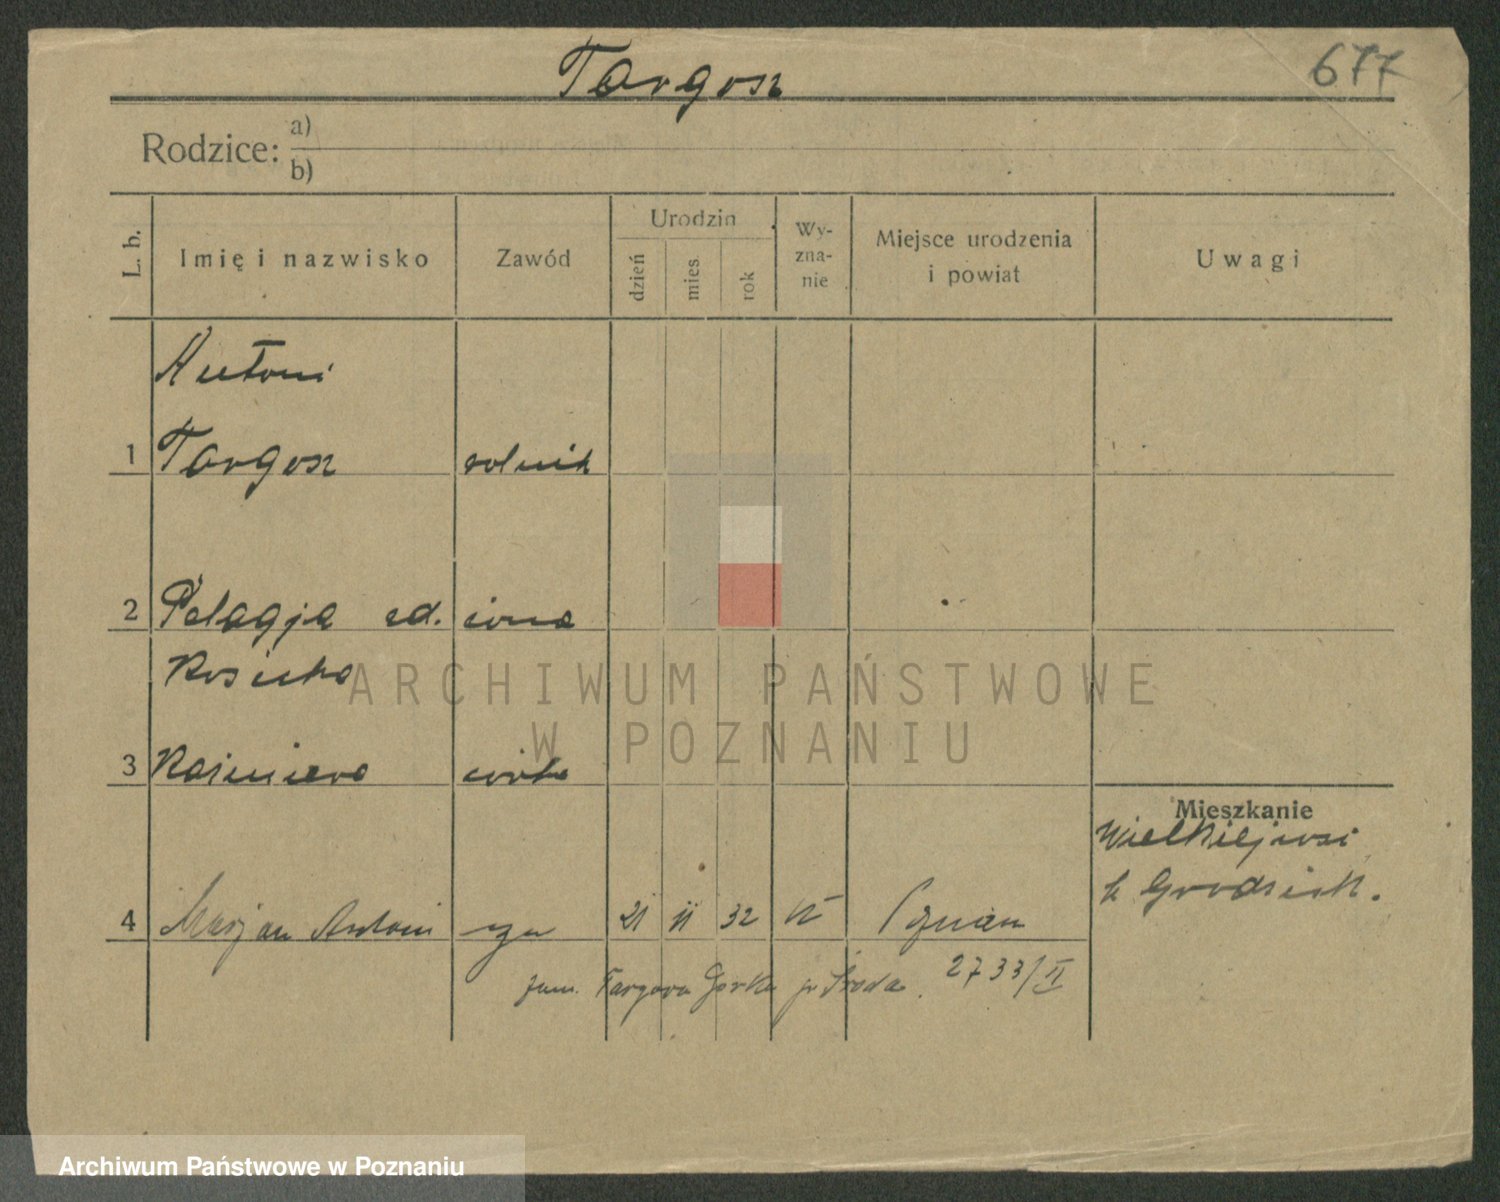 Targosz
677
Rodzice: a)
b)
L. b.
Imię i nazwisko
Zawód
Urodzin
dzień
mies.
rok
Wy-
zna-
nie
Miejsce urodzenia
i powiat
Uwagi
Antoni
1 Targosz rolnik
2 Pelagja zd. żona
3 Kaźmiera córka
Mieszkanie
Wielkiejwsi
k Grodzisk.
4 Marjan Antoni syn 21 11 32 k Poznań
zam. Targowa Gorka p Środa. 2733/II
ARCHIWUM PAŃSTWOWE
W POZNANIU
Archiwum Państwowe w Poznaniu